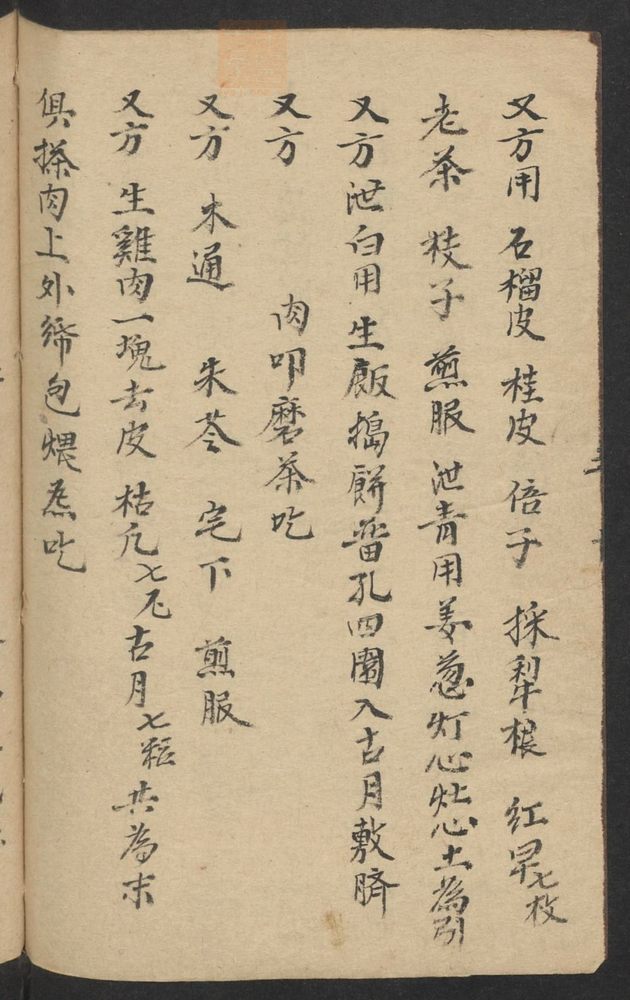 又方用 石榴皮 桂皮 倍子 採犁根 红早七枚
老茶 枝子 煎服 泄青用姜葱灯心灶心土為引
又方泄白用 生飯搗餅畨孔四圍入古月敷臍
又方 肉叩磨茶吃
又方 木通 朱苓 宅下 煎服
又方 生雞肉一塊去皮 枯凢七 古月七粒 共為末
俱搽肉上外綿包煨 吃